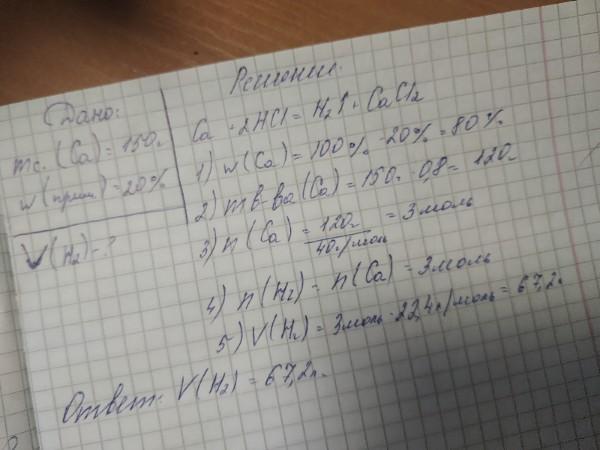 Дано:
mс. (Ca) = 150г
w(прим.) = 20%
V(H₂) - ?
Решение.
Ca + 2HCl = H₂↑ + CaCl₂
1) w(Ca) = 100% - 20% = 80%
2) m в-ва (Ca) = 150г · 0,8 = 120г
3) n (Ca) = 120г / 40г/моль = 3моль
4) n(H₂) = n(Ca) = 3моль
5) V(H₂) = 3моль · 22,4л/моль = 67,2л
Ответ: V(H₂) = 67,2л.